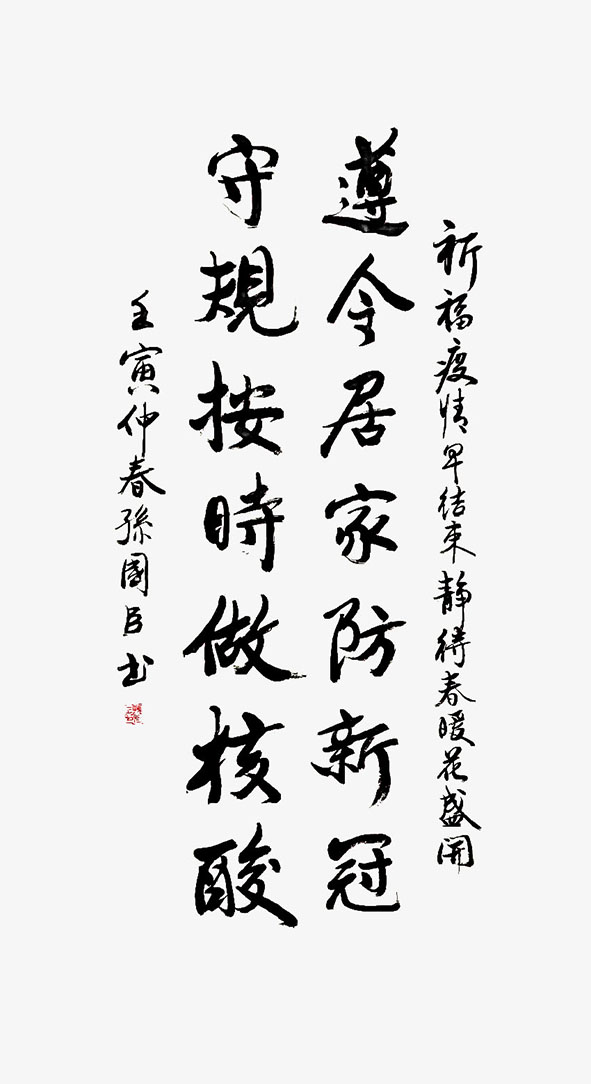 祈福疫情早结束静待春暖花盛開
遵令居家防新冠
守規按時做核酸
壬寅仲春孫國臣书